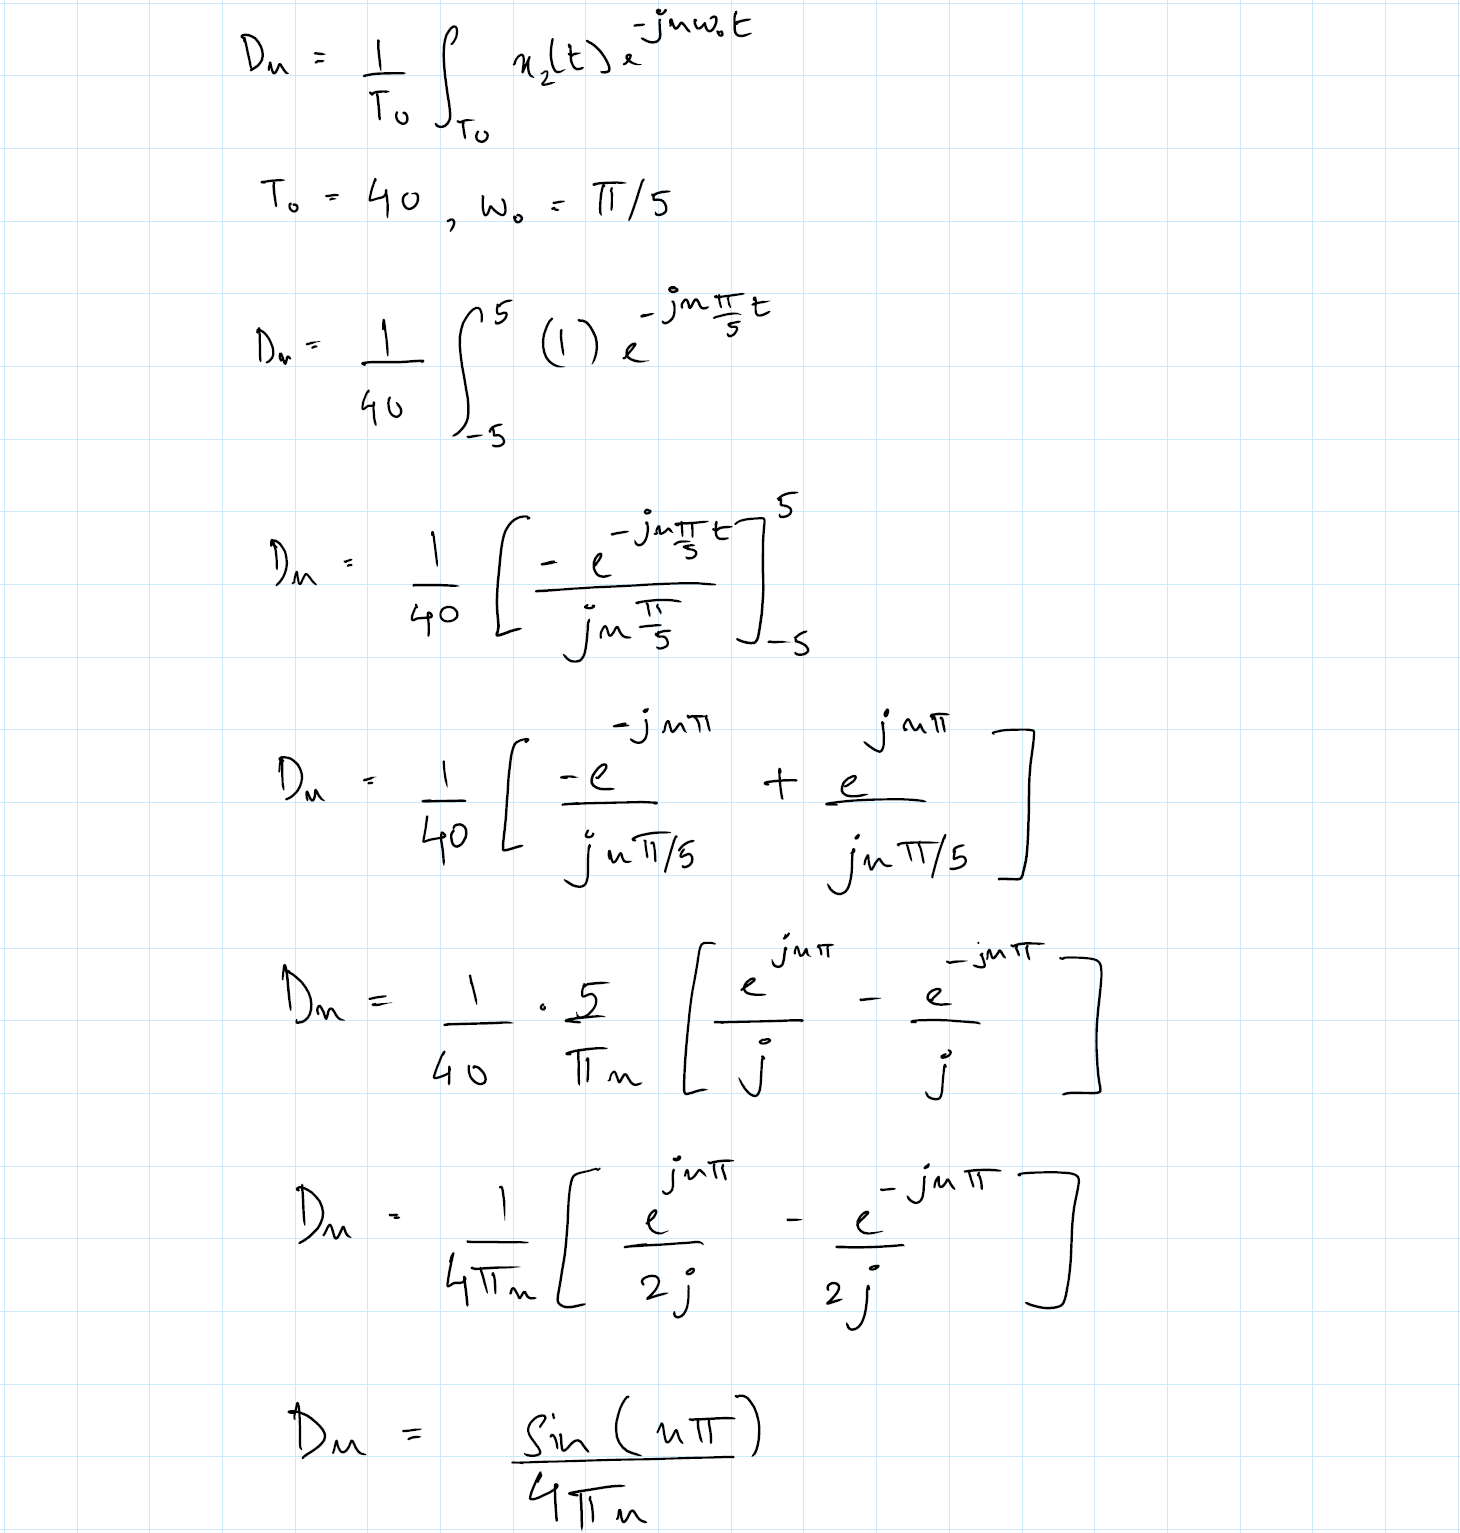 Dn = 1/T₀ ∫_T₀ x₂(t) e^(-jnω₀t)
T₀ = 40, ω₀ = π/5
Dn = 1/40 ∫_-5^5 (1) e^(-jn π/5 t)
Dn = 1/40 [ -e^(-jn π/5 t) / (jn π/5) ]_-5^5
Dn = 1/40 [ -e^(-jnπ) / (jnπ/5) + e^(jnπ) / (jnπ/5) ]
Dn = 1/40 · 5/(πn) [ e^(jnπ)/j - e^(-jnπ)/j ]
Dn = 1/(4πn) [ e^(jnπ)/(2j) - e^(-jnπ)/(2j) ]
Dn = sin(nπ)/(4πn)